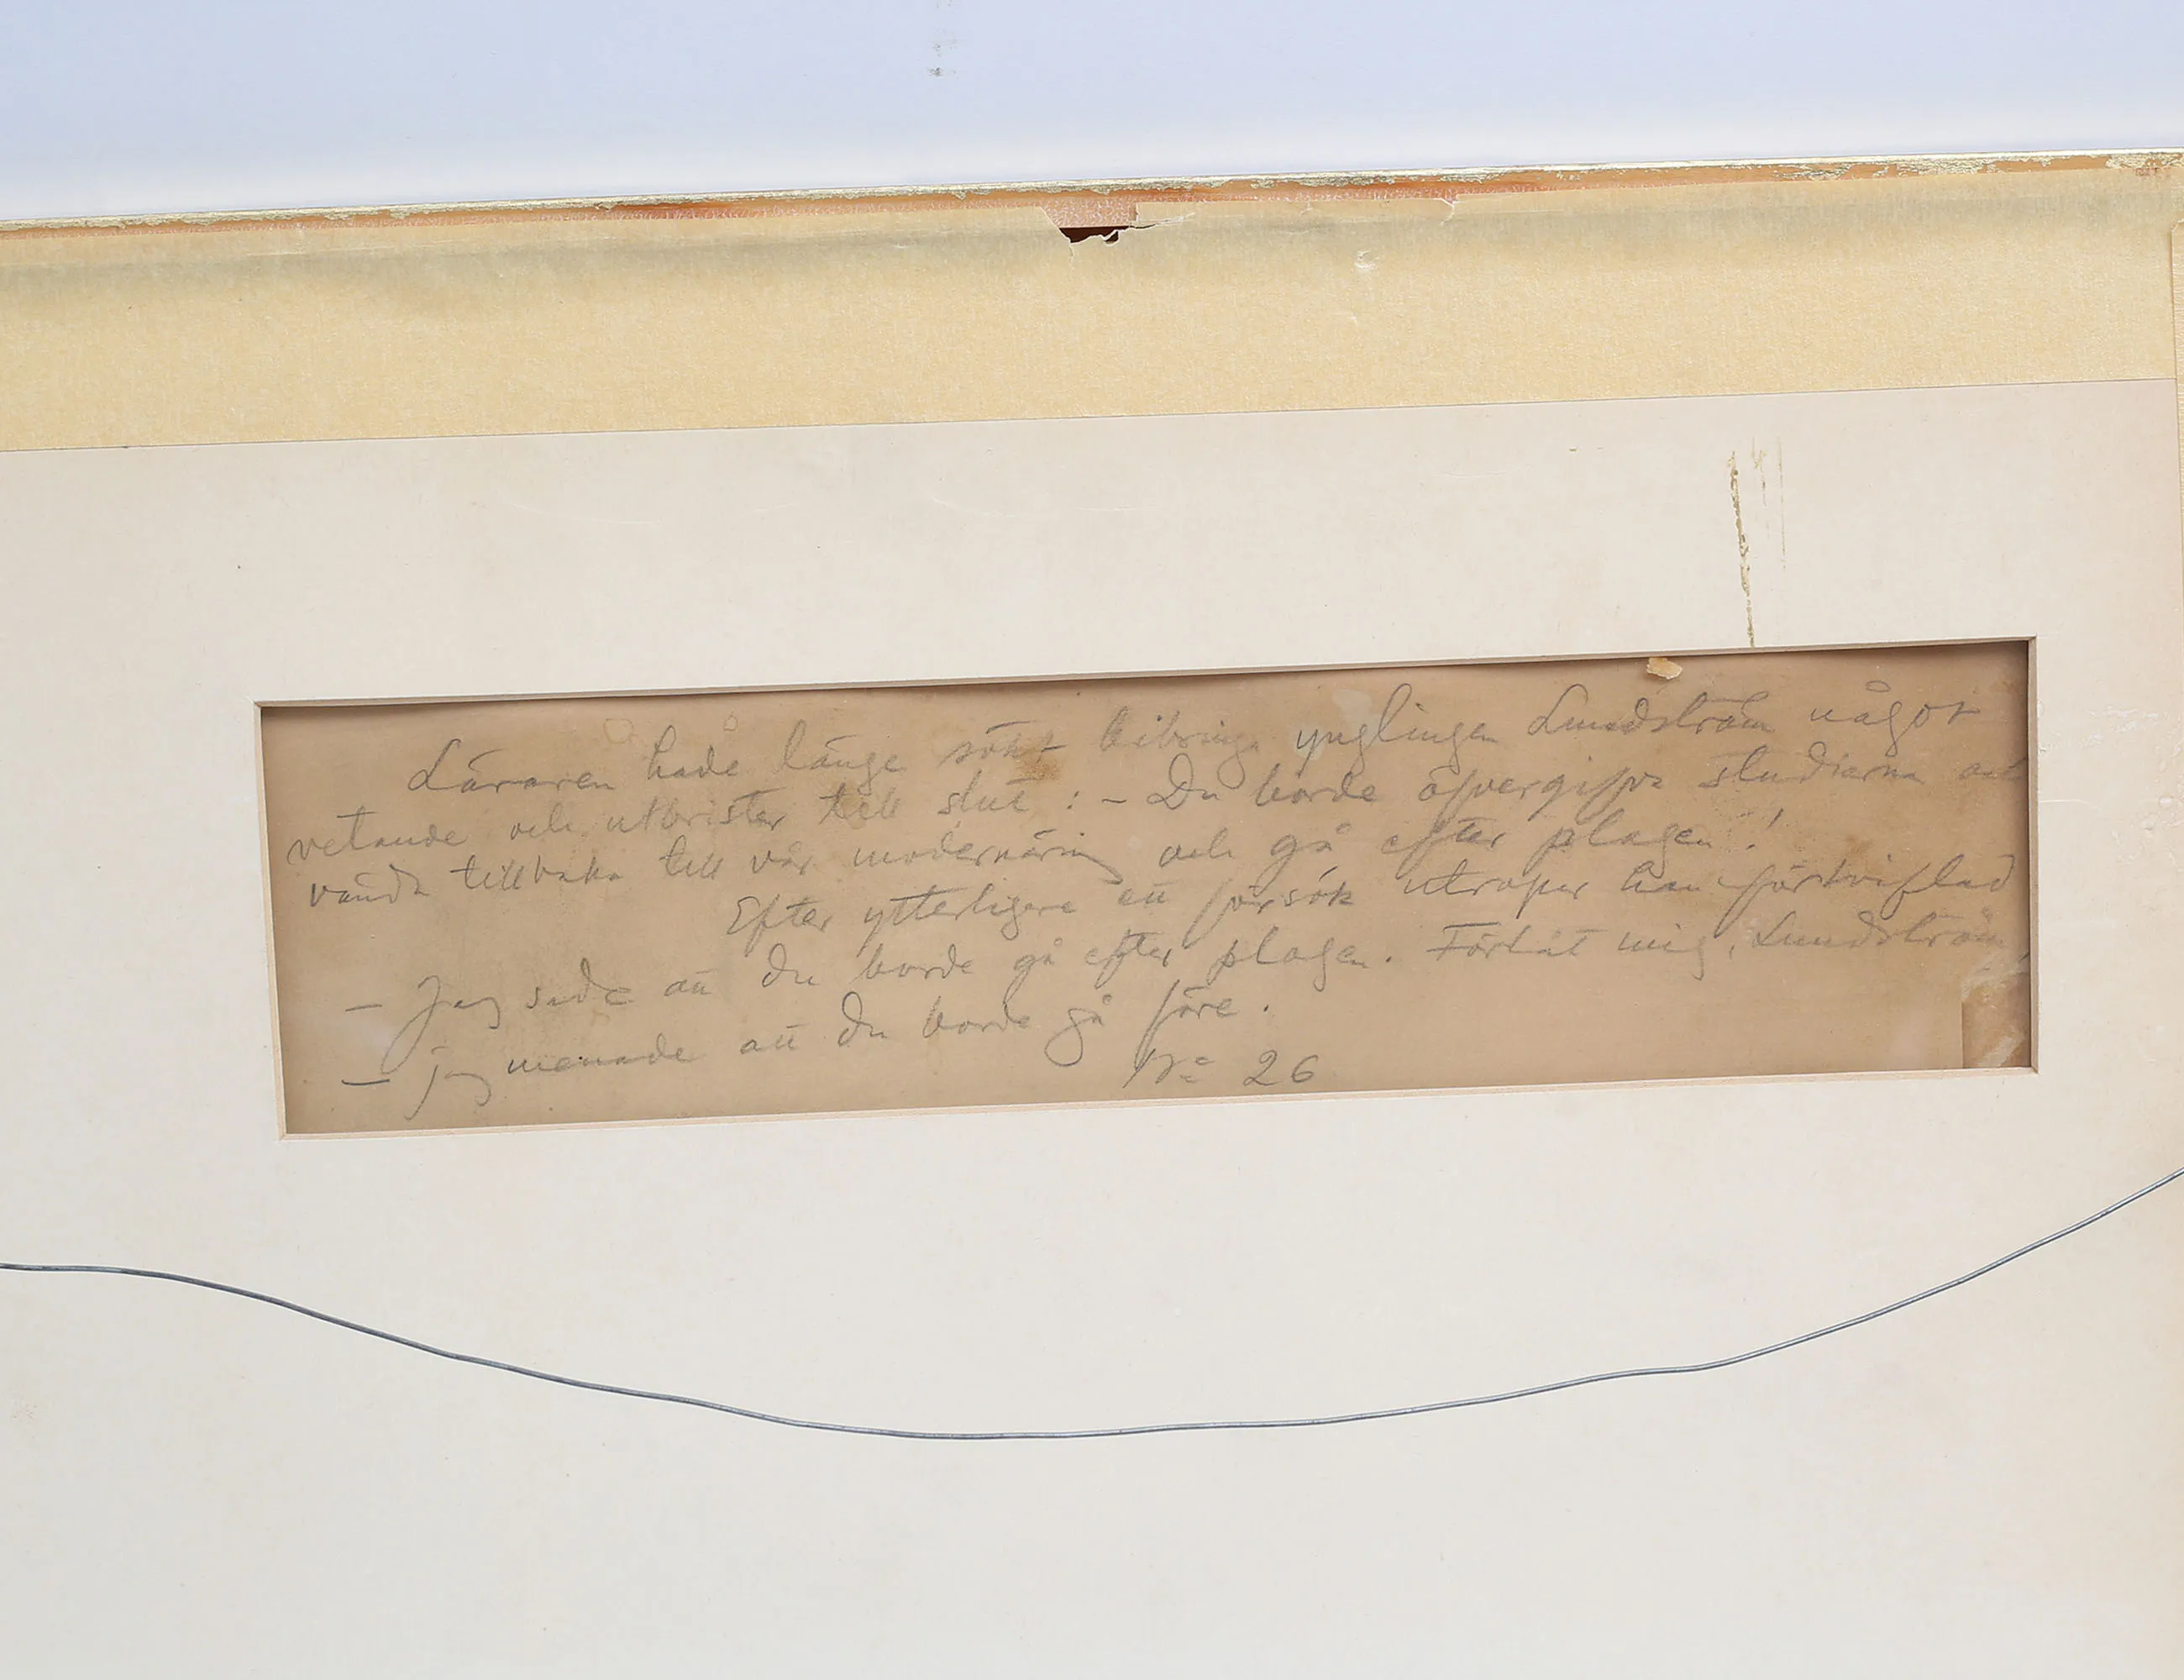 Läraren hade länge sökt bibringa ynglingen Lundström något
vetande och utbrister till slut : - Du borde öfvergifva studierna och
vända tillbaka till vår modernäring och gå efter plogen !
Efter ytterligare ett försök utropar han förtviflad
- Jag sade att du borde gå efter plogen. Förlåt mig, Lundström,
- jag menade att du borde gå före.
No 26